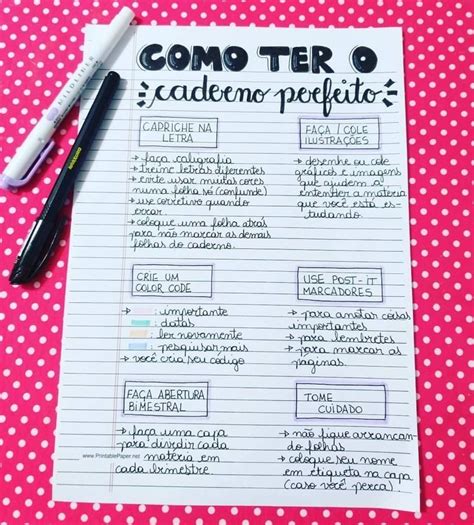 COMO TER O
caderno perfeito
CAPRICHE NA
LETRA
→ faça caligrafia
→ treine letras diferentes
→ evite usar muitas cores
numa folha só (confunde)
→ use corretivo quando
errar
→ coloque uma folha atrás
para não marcar as demais
folhas do caderno.
FAÇA / COLE
ILUSTRAÇÕES
→ desenhe ou cole
gráficos e imagens
que ajudem a
entender a matéria
que você está es-
tudando.
CRIE UM
COLOR CODE
→ : importante
: datas
: ler novamente
: pesquisar mais
→ você cria seu código
USE POST-IT
MARCADORES
→ para anotar coisas
importantes
→ para lembretes
→ para marcar as
páginas.
FAÇA ABERTURA
BIMESTRAL
→ faça uma capa
para dividir cada
matéria em
cada bimestre.
www.PrintablePaper.net
TOME
CUIDADO
→ não fique arrancan-
do folhas
→ coloque seu nome
em etiqueta na capa
(caso você perca)